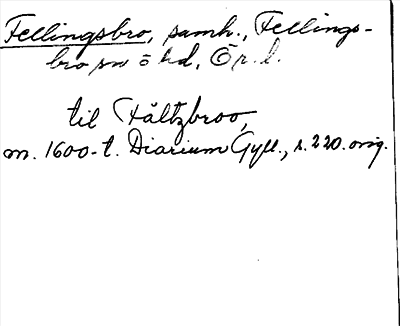 Fellingsbro, samh., Fellings-
bro sn ö hd, Ör. l.
til Fältzbroo,
m. 1600-t. Diarium Gyll., s. 220. orig.